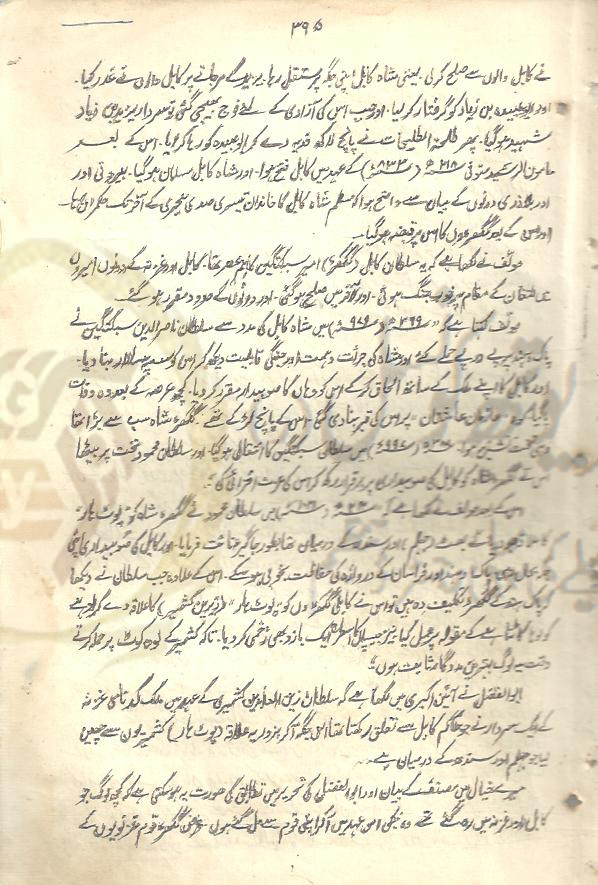 ۳۹۵
نے کابل والوں سے صلح کر لی۔ یعنی شاہ کابل اپنی جگہ پر مستقل رہا۔ یزید کے مر جانے پر کابل والوں نے غدر کیا۔
اور ابو عبیدہ بن زیاد کو گرفتار کر لیا۔ اور جب اس کی آزادی کے لئے فوج بھیجی گئی تو سردار یزید بن زیاد
شہید ہو گیا۔ پھر طلحۃ الطلحات نے پانچ لاکھ فدیہ دے کر ابو عبیدہ کو رہا کرایا۔ اس کے بعد
مامون الرشید متوفی ۲۱۸ھ (۸۳۳ء) کے عہد میں کابل فتح ہوا۔ اور شاہ کابل مسلمان ہو گیا۔ بیرونی اور
اور بلاذری دونوں کے بیان سے واضح ہوا کہ مسلم شاہ کابل کا خاندان تیسری صدی ہجری کے آخر تک حکمران رہا۔
اور اس کے بعد گکھڑوں کا اس پر قبضہ ہو گیا۔
مولف نے لکھا ہے کہ یہ سلطان کابل (گکھڑ) امیر سبکتگین کا ہم عصر تھا۔ کابل اور غزنہ کے دونوں امیروں
کے مقام پر خوب جنگ ہوئی۔ اور آخر میں صلح ہو گئی۔ اور دونوں کے حدود مقرر ہو گئے۔
مولف کہتا ہے کہ ۳۶۹ھ (۹۷۹ء) میں شاہ کابل کی مدد سے سلطان ناصر الدین سبکتگین نے
پاک و ہند پر پے در پے حملے کئے اور شاہ کی جرأت و ہمت اور جنگی قابلیت دیکھ کر اس کو سپہ سالار بنا دیا۔
اور کابل کا اپنے ملک کے ساتھ الحاق کر کے اس کو وہاں کا صوبیدار مقرر کر دیا۔ کچھ عرصہ کے بعد وہ وفات
پا گیا عاشقان پر اس کی قبر بنا دی گئی۔ اس کے پانچ لڑکے تھے۔ گکھڑ شاہ سب سے بڑا تھا
وہی تخت نشین ہوا۔ (۹۹۷ء) میں سلطان سبکتگین کا انتقال ہو گیا۔ اور سلطان محمود تخت پر بیٹھا
اس نے گکھڑ شاہ کو کابل کی صوبیداری پر برقرار رکھ کر اس کی عزت افزائی کی۔
اس کے بعد مولف نے لکھا ہے کہ میں سلطان محمود نے گکھڑ شاہ کو پوٹھوہار
کا علاقہ جو دریائے بہت (جہلم) اور سندھ کے درمیان تھا بطور جاگیر عنایت فرمایا۔ اور کابل کی صوبیداری بھی
بحال رہی تاکہ ہند اور خراسان کے دروازہ کی حفاظت بخوبی ہو سکے۔ اس کے علاوہ جب سلطان نے دیکھا
کہ پاک ہند کے گکھڑ تکلیف دہ ہیں تو اس نے کابلی گکھڑوں کو پوٹھوہار (زیریں کشمیر) کا علاقہ دے کر لوہے
کو لوہا کاٹتا ہے کے مقولہ پر عمل کیا نیز جیپال کا ایک بازو بھی زخمی کر دیا۔ تاکہ کشمیر کے لوہ کوٹ پر حملہ کرتے
وقت یہ لوگ بہترین مددگار ثابت ہوں۔
ابوالفضل نے آئین اکبری میں لکھا ہے کہ سلطان زین العابدین کشمیری کے عہد میں ملک گد نامی غزنہ
کے ایک سردار نے جو حاکم کابل سے تعلق رکھتا تھا اس جگہ آ کر بزور یہ علاقہ (پوٹھوہار) کشمیریوں سے چھین
لیا جو جہلم اور سندھ کے درمیان ہے۔
میرے خیال میں مصنف کے بیان اور ابوالفضل کی تحریر میں تطابق کی صورت یہ ہو سکتی ہے کہ کچھ لوگ جو
کابل اور غزنہ میں رہ گئے تھے وہ بھی اس عہد میں آ کر اپنی قوم سے مل گئے ہوں۔ گکھڑ قوم غزنویوں کے